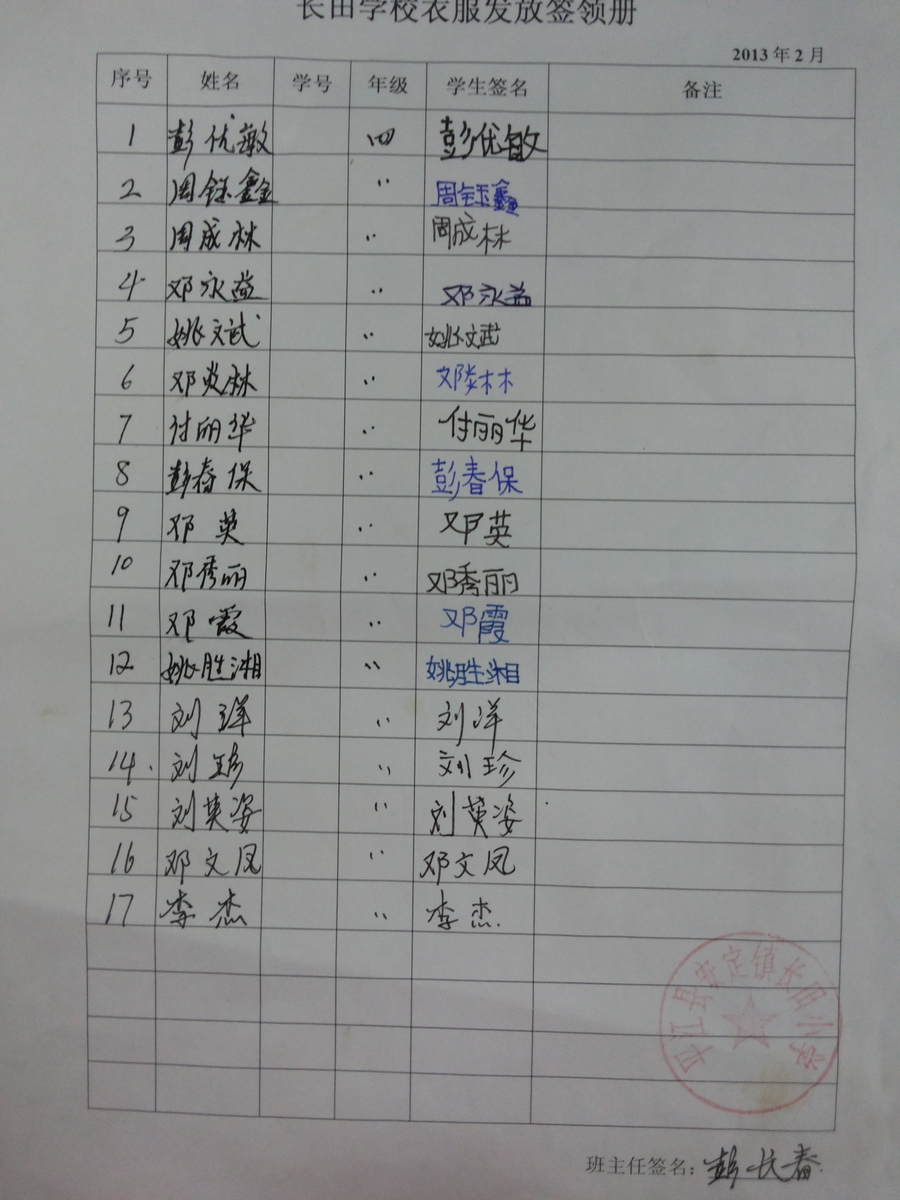 长田学校衣服发放签领册
2013年2月
序号 姓名 学号 年级 学生签名 备注
1 彭优敏 四 彭优敏
2 周钰鑫 〃 周钰鑫
3 周成林 〃 周成林
4 邓永益 〃 邓永益
5 姚文武 〃 姚文武
6 邓炎林 〃 邓林
7 付丽华 〃 付丽华
8 彭春保 〃 彭春保
9 邓英 〃 邓英
10 邓秀丽 〃 邓秀丽
11 邓霞 〃 邓霞
12 姚胜湘 〃 姚胜湘
13 刘洋 〃 刘洋
14 刘珍 〃 刘珍
15 刘英姿 〃 刘英姿
16 邓文凤 〃 邓文凤
17 李杰 〃 李杰.
平江县安定镇长田小学
班主任签名：彭长春